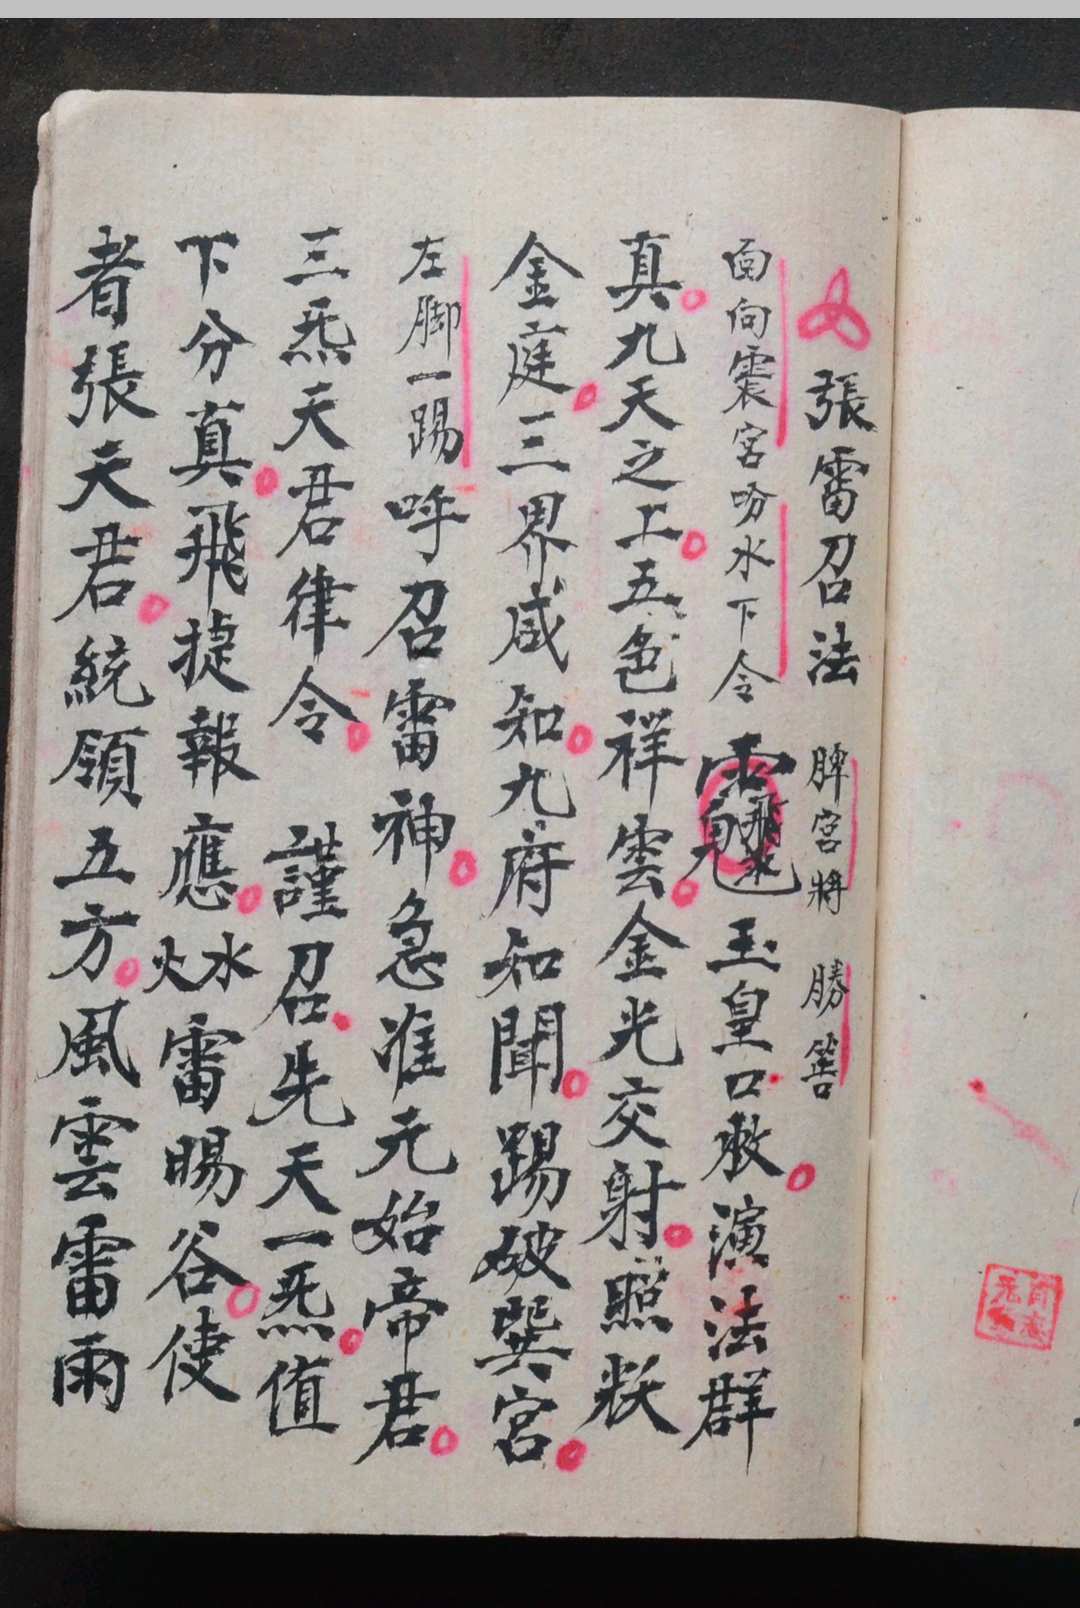 張雷召法 脾宮將 勝筶
面向震宮吩水下令 玉皇口敕演法群
真九天之上五色祥雲金光交射照狀
金庭三界咸知九府知聞踢破巽宮
左脚一踢呼召雷神急准元始帝君
三炁天君律令 謹召先天一炁值
下分真飛捷報應水火雷暘谷使
者張天君統領五方風雲雷雨